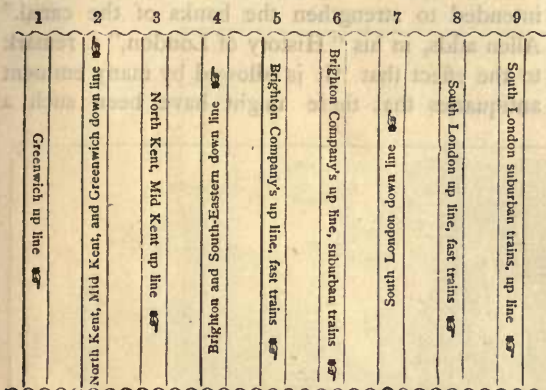 1 2 3 4 5 6 7 8 9
Greenwich up line ☞
North Kent, Mid Kent, and Greenwich down line ☞
North Kent, Mid Kent up line ☞
Brighton and South-Eastern down line ☞
Brighton Company's up line, fast trains ☞
Brighton Company's up line, suburban trains ☞
South London down line ☞
South London up line, fast trains ☞
South London suburban trains, up line ☞